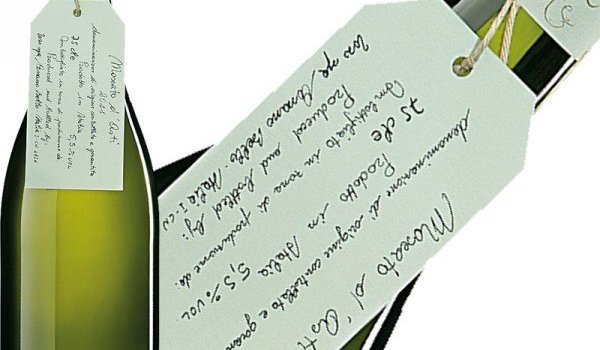 Moscato d'Asti
2011
denominazione di origine controllata e garantita
Prodotto in Italia
75 cle 5,5% VOL
Imbottigliato in zona di produzione da
Produced and bottled by:
Italia I-CN
Moscato d'Asti
denominazione di origine controllata e garan
Prodotto in Italia 5,5% VOL
75 cle
Imbottigliato in zona di produzione da:
Produced and bottled by:
Italia I-CN